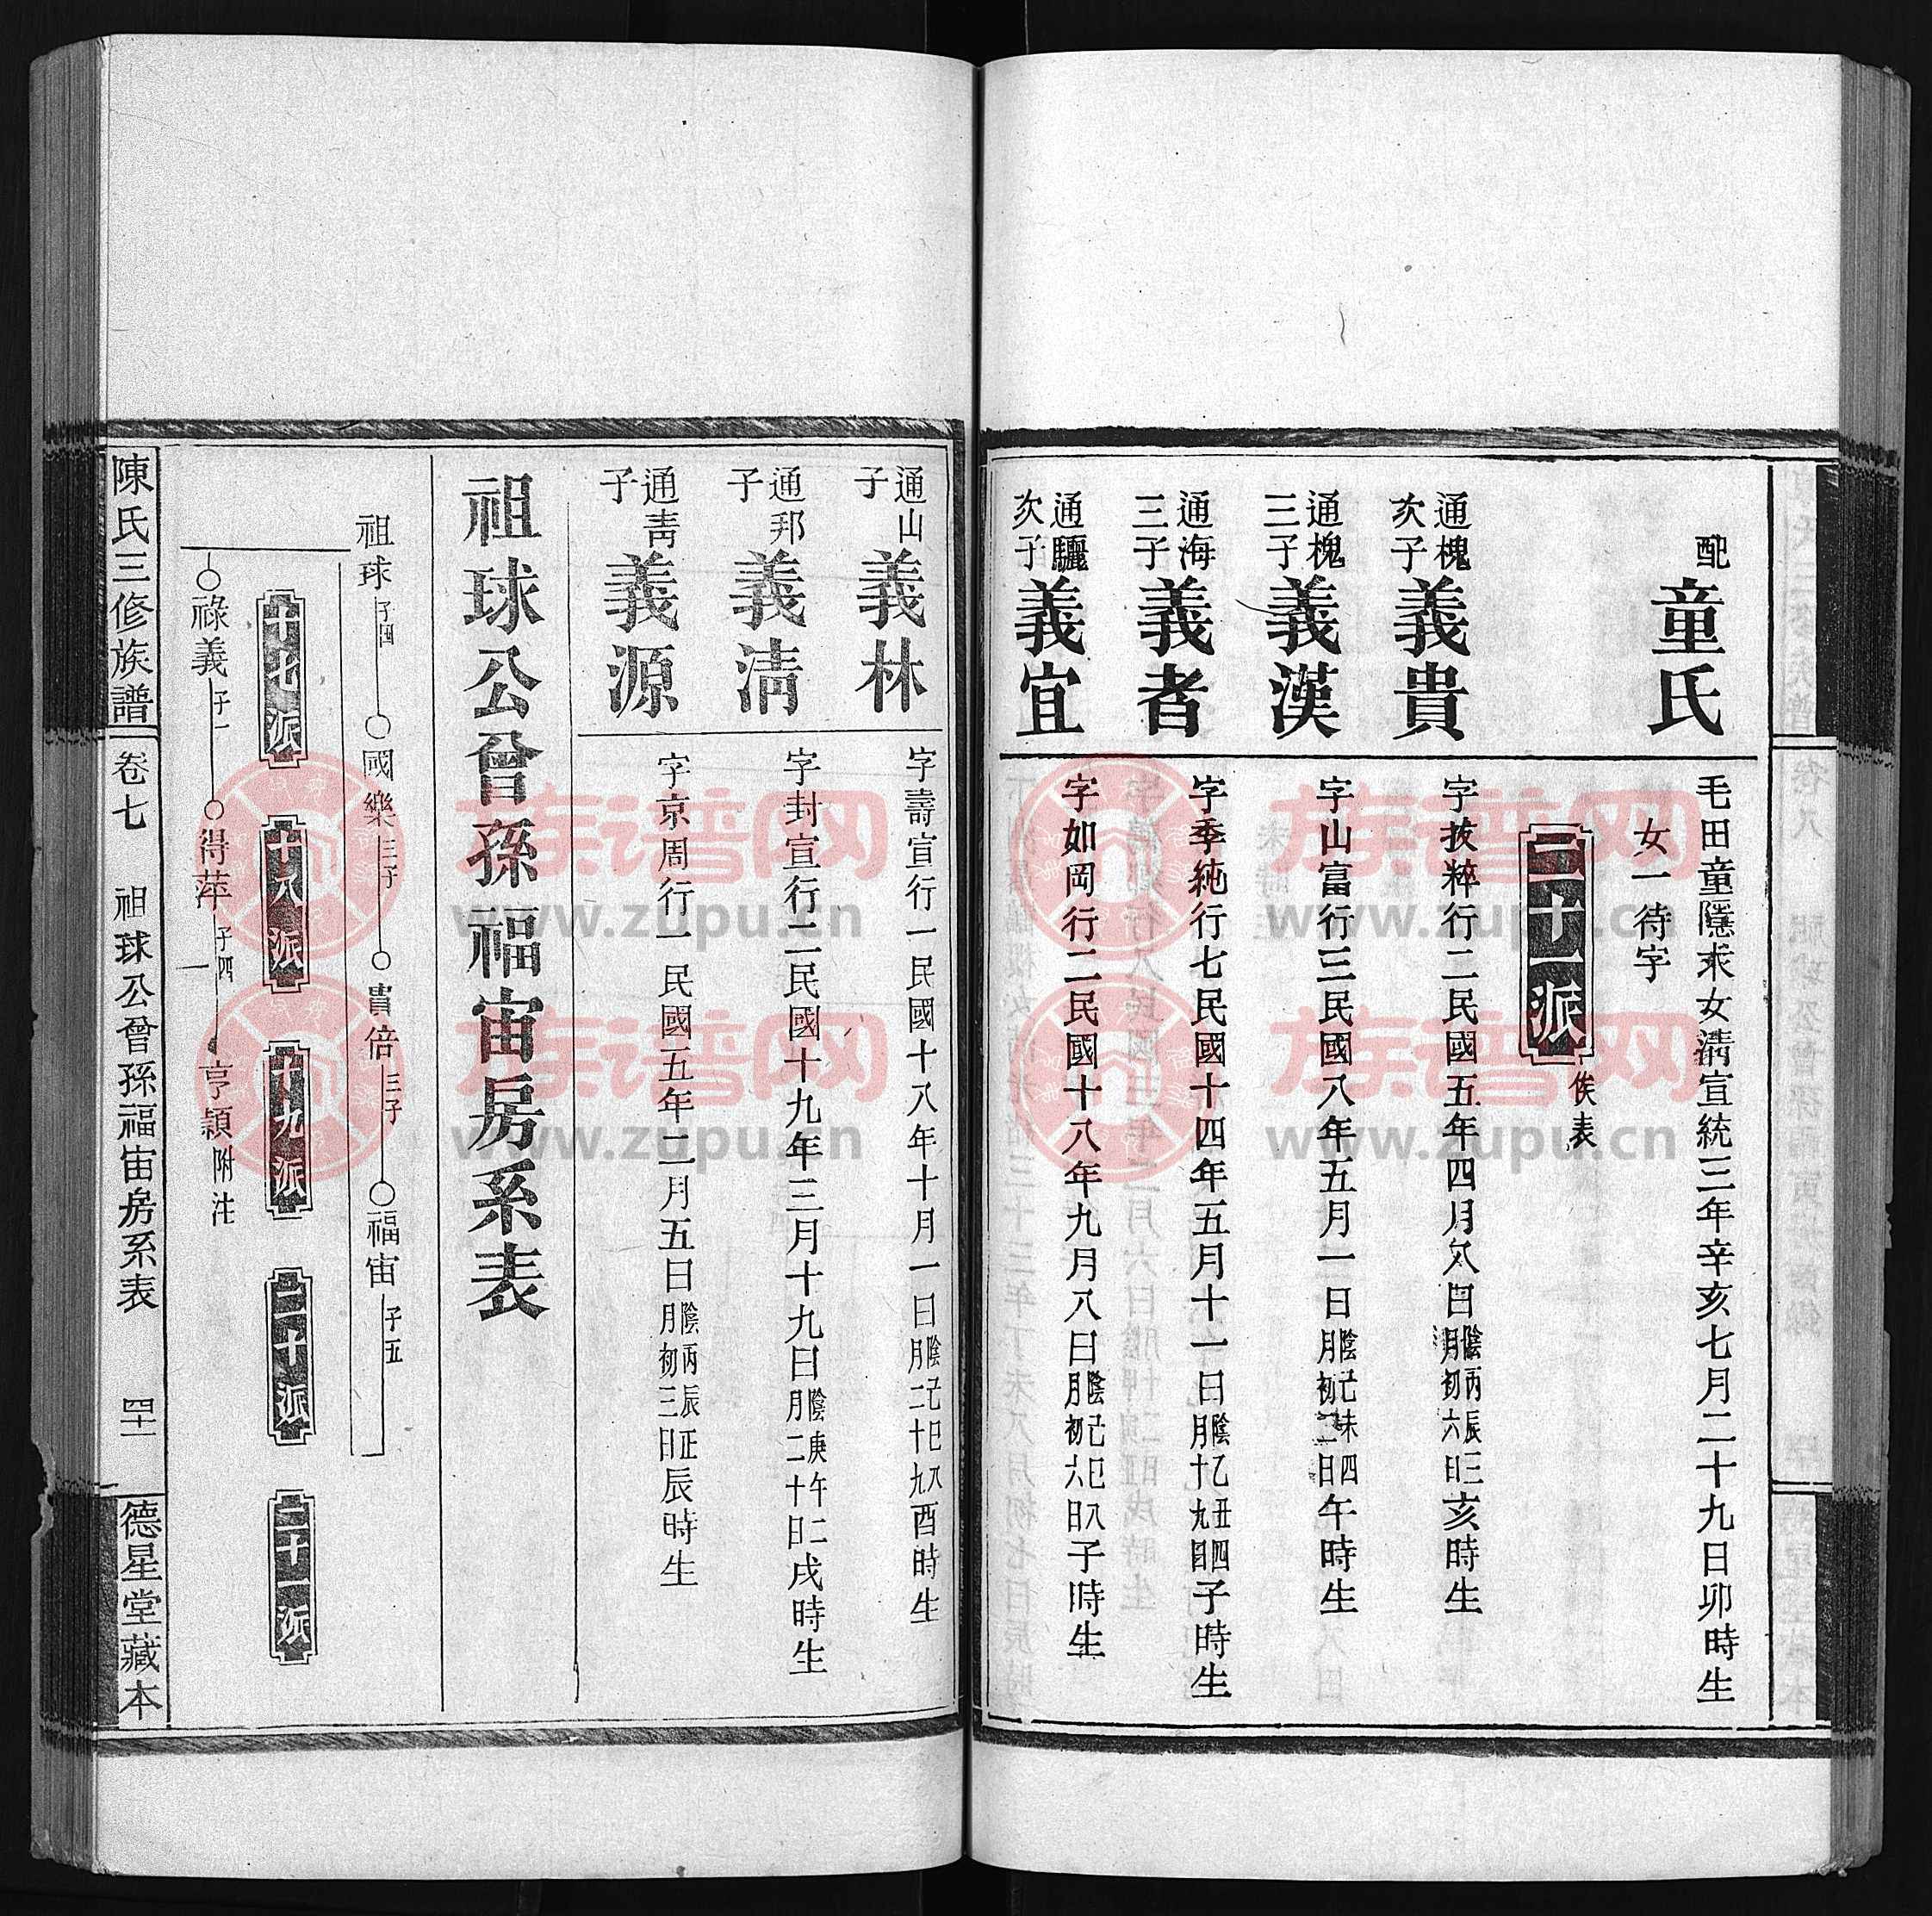 配
童氏
毛田童隱求女淸宣統三年辛亥七月二十九日卯時生
女一待字
二十一派
俟表
通槐次子
義貴
字拔粹行二民國五年四月八日陰丙辰三月初六日亥時生
通槐三子
義漢
字山富行三民國八年五月一日陰己未四月初二日午時生
通海三子
義者
字季純行七民國十四年五月十一日陰乙丑四月十九日子時生
通驪次子
義宜
字如岡行二民國十八年九月八日陰己巳八月初六日子時生
通山子
義林
字壽宣行一民國十八年十月一日陰己巳八月二十九酉時生
通邦子
義淸
字封宣行二民國十九年三月十九日陰庚午二月二十日戌時生
通靑子
義源
字京周行一民國五年二月五日陰丙辰正月初三日辰時生
祖球公曾孫福宙房系表
祖球 子四 國樂 三子 貴倍 三子 福宙 子五
十七派 十八派 十九派 二十派 二十一派
祿義 子一 得萍 子四 亨穎 附注
陳氏三修族譜 卷七 祖球公曾孫福宙房系表 四十一 德星堂藏本
族谱网
www.zupu.cn
族谱网
www.zupu.cn
族谱网
www.zupu.cn
族谱网
www.zupu.cn